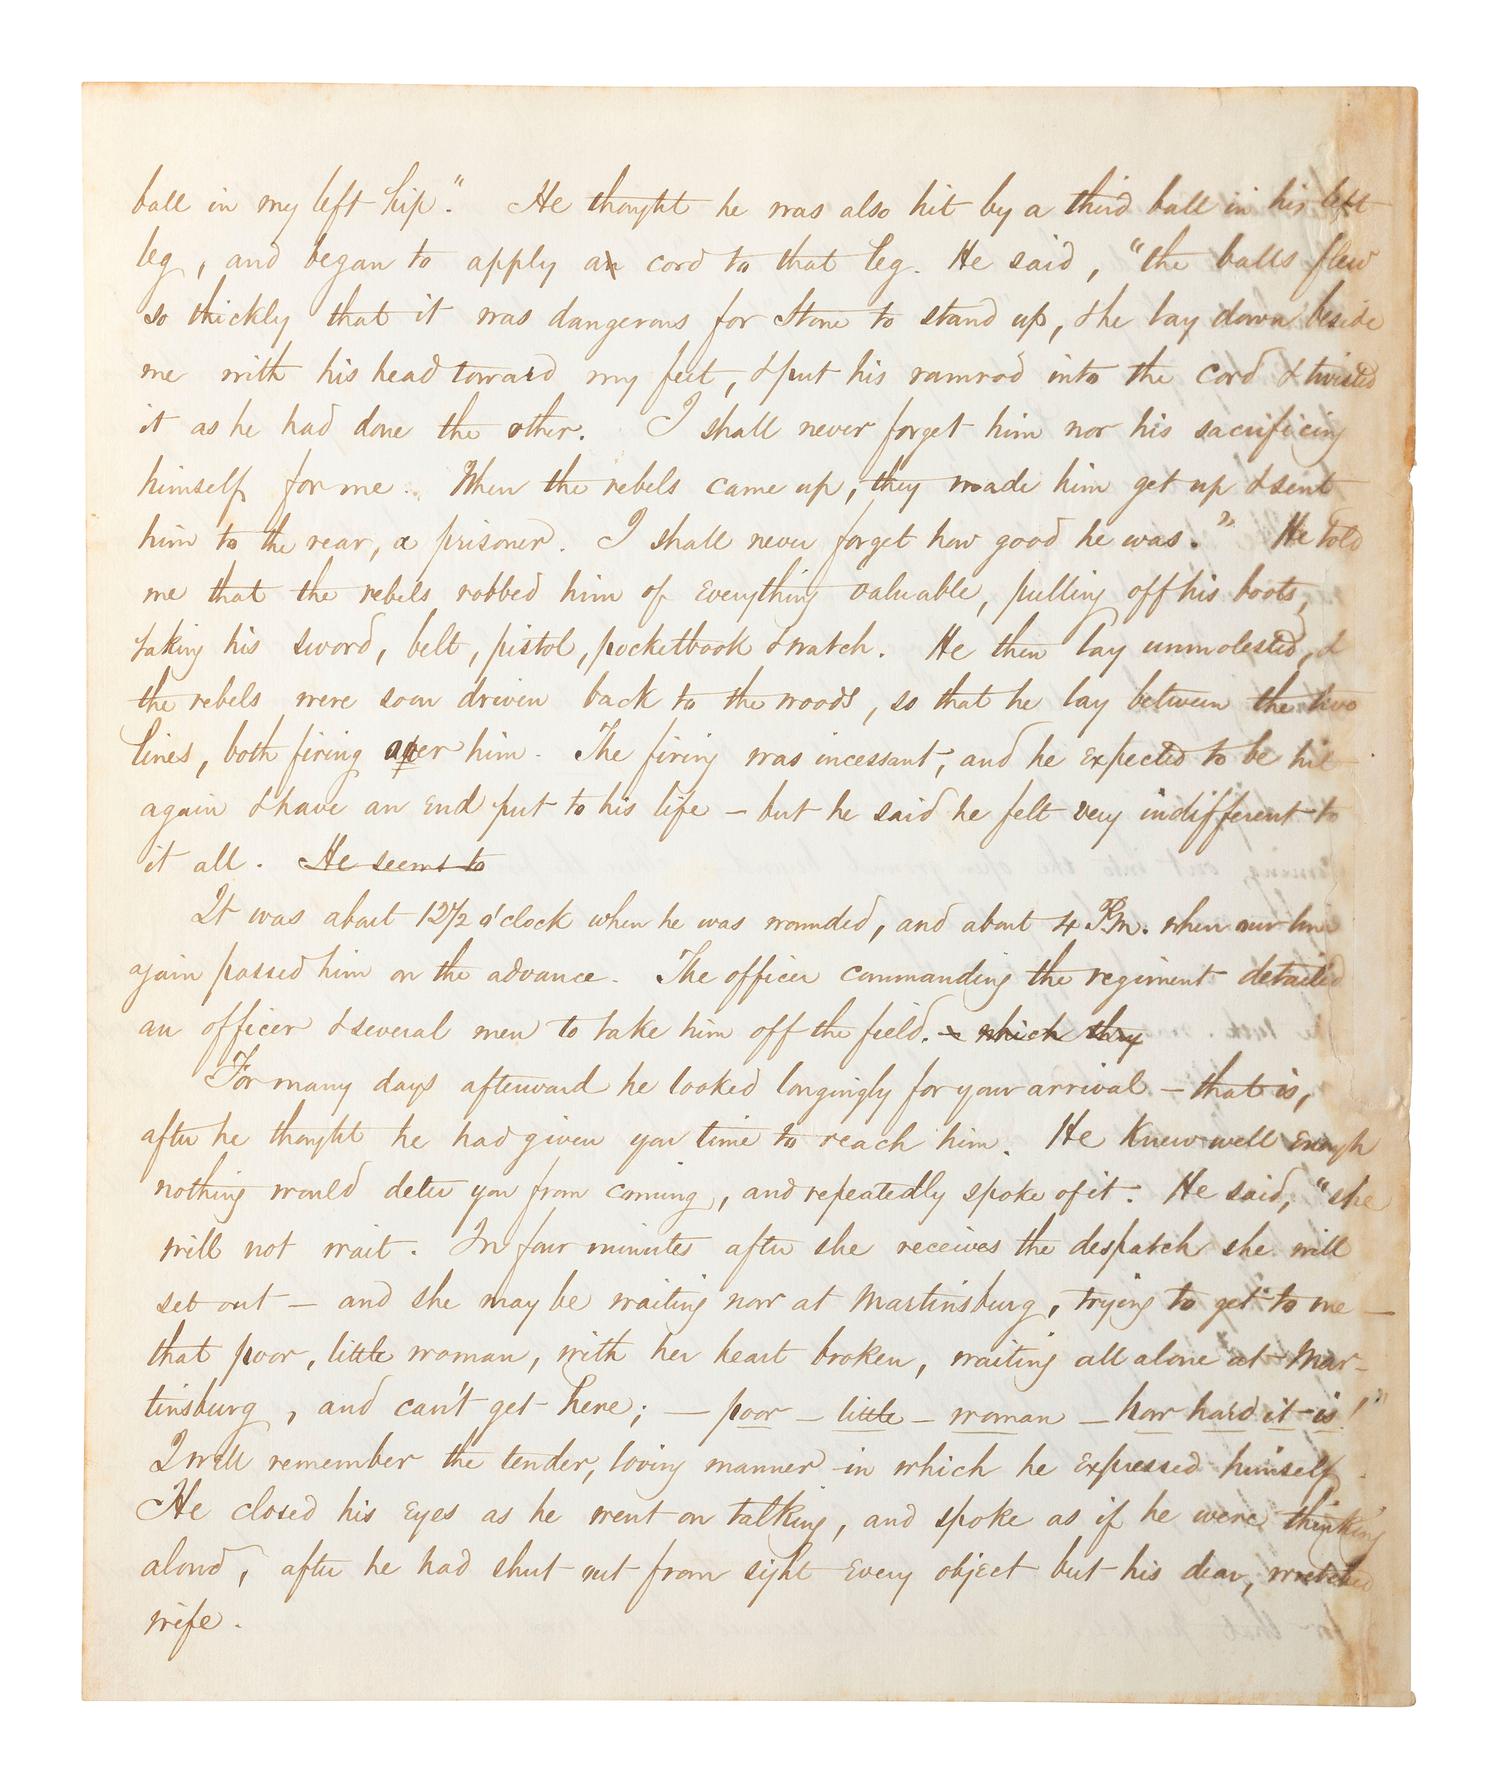 ball in my left hip." He thought he was also hit by a third ball in his left
leg, and began to apply a cord to that leg. He said, "the balls flew
so thickly that it was dangerous for Stone to stand up, & he lay down beside
me with his head toward my feet, & put his ramrod into the cord & twisted
it as he had done the other. I shall never forget him nor his sacrificing
himself for me. When the rebels came up, they made him get up & sent
him to the rear, a prisoner. I shall never forget how good he was." He told
me that the rebels robbed him of everything valuable, pulling off his boots,
taking his sword, belt, pistol, pocketbook & watch. He then lay unmolested, &
the rebels were soon driven back to the woods, so that he lay between the two
lines, both firing over him. The firing was incessant, and he expected to be hit
again & have an end put to his life — but he said he felt very indifferent to
it all. He seems to
It was about 12 1/2 o'clock when he was wounded, and about 4 P.M. when our line
again passed him on the advance. The officer commanding the regiment detailed
an officer & several men to take him off the field. — which they
For many days afterward he looked longingly for your arrival — that is,
after he thought he had given you time to reach him. He knew well enough
nothing would deter you from coming, and repeatedly spoke of it. He said, "she
will not wait. In four minutes after she receives the despatch she will
set out — and she may be waiting now at Martinsburg, trying to get to me —
that poor, little woman, with her heart broken, waiting all alone at Mar-
tinsburg, and can't get here; — poor — little — woman — how hard it is!"
I will remember the tender, loving manner in which he expressed himself.
He closed his eyes as he went on talking, and spoke as if he were thinking
aloud, after he had shut out from sight every object but his dear, wretched
wife.